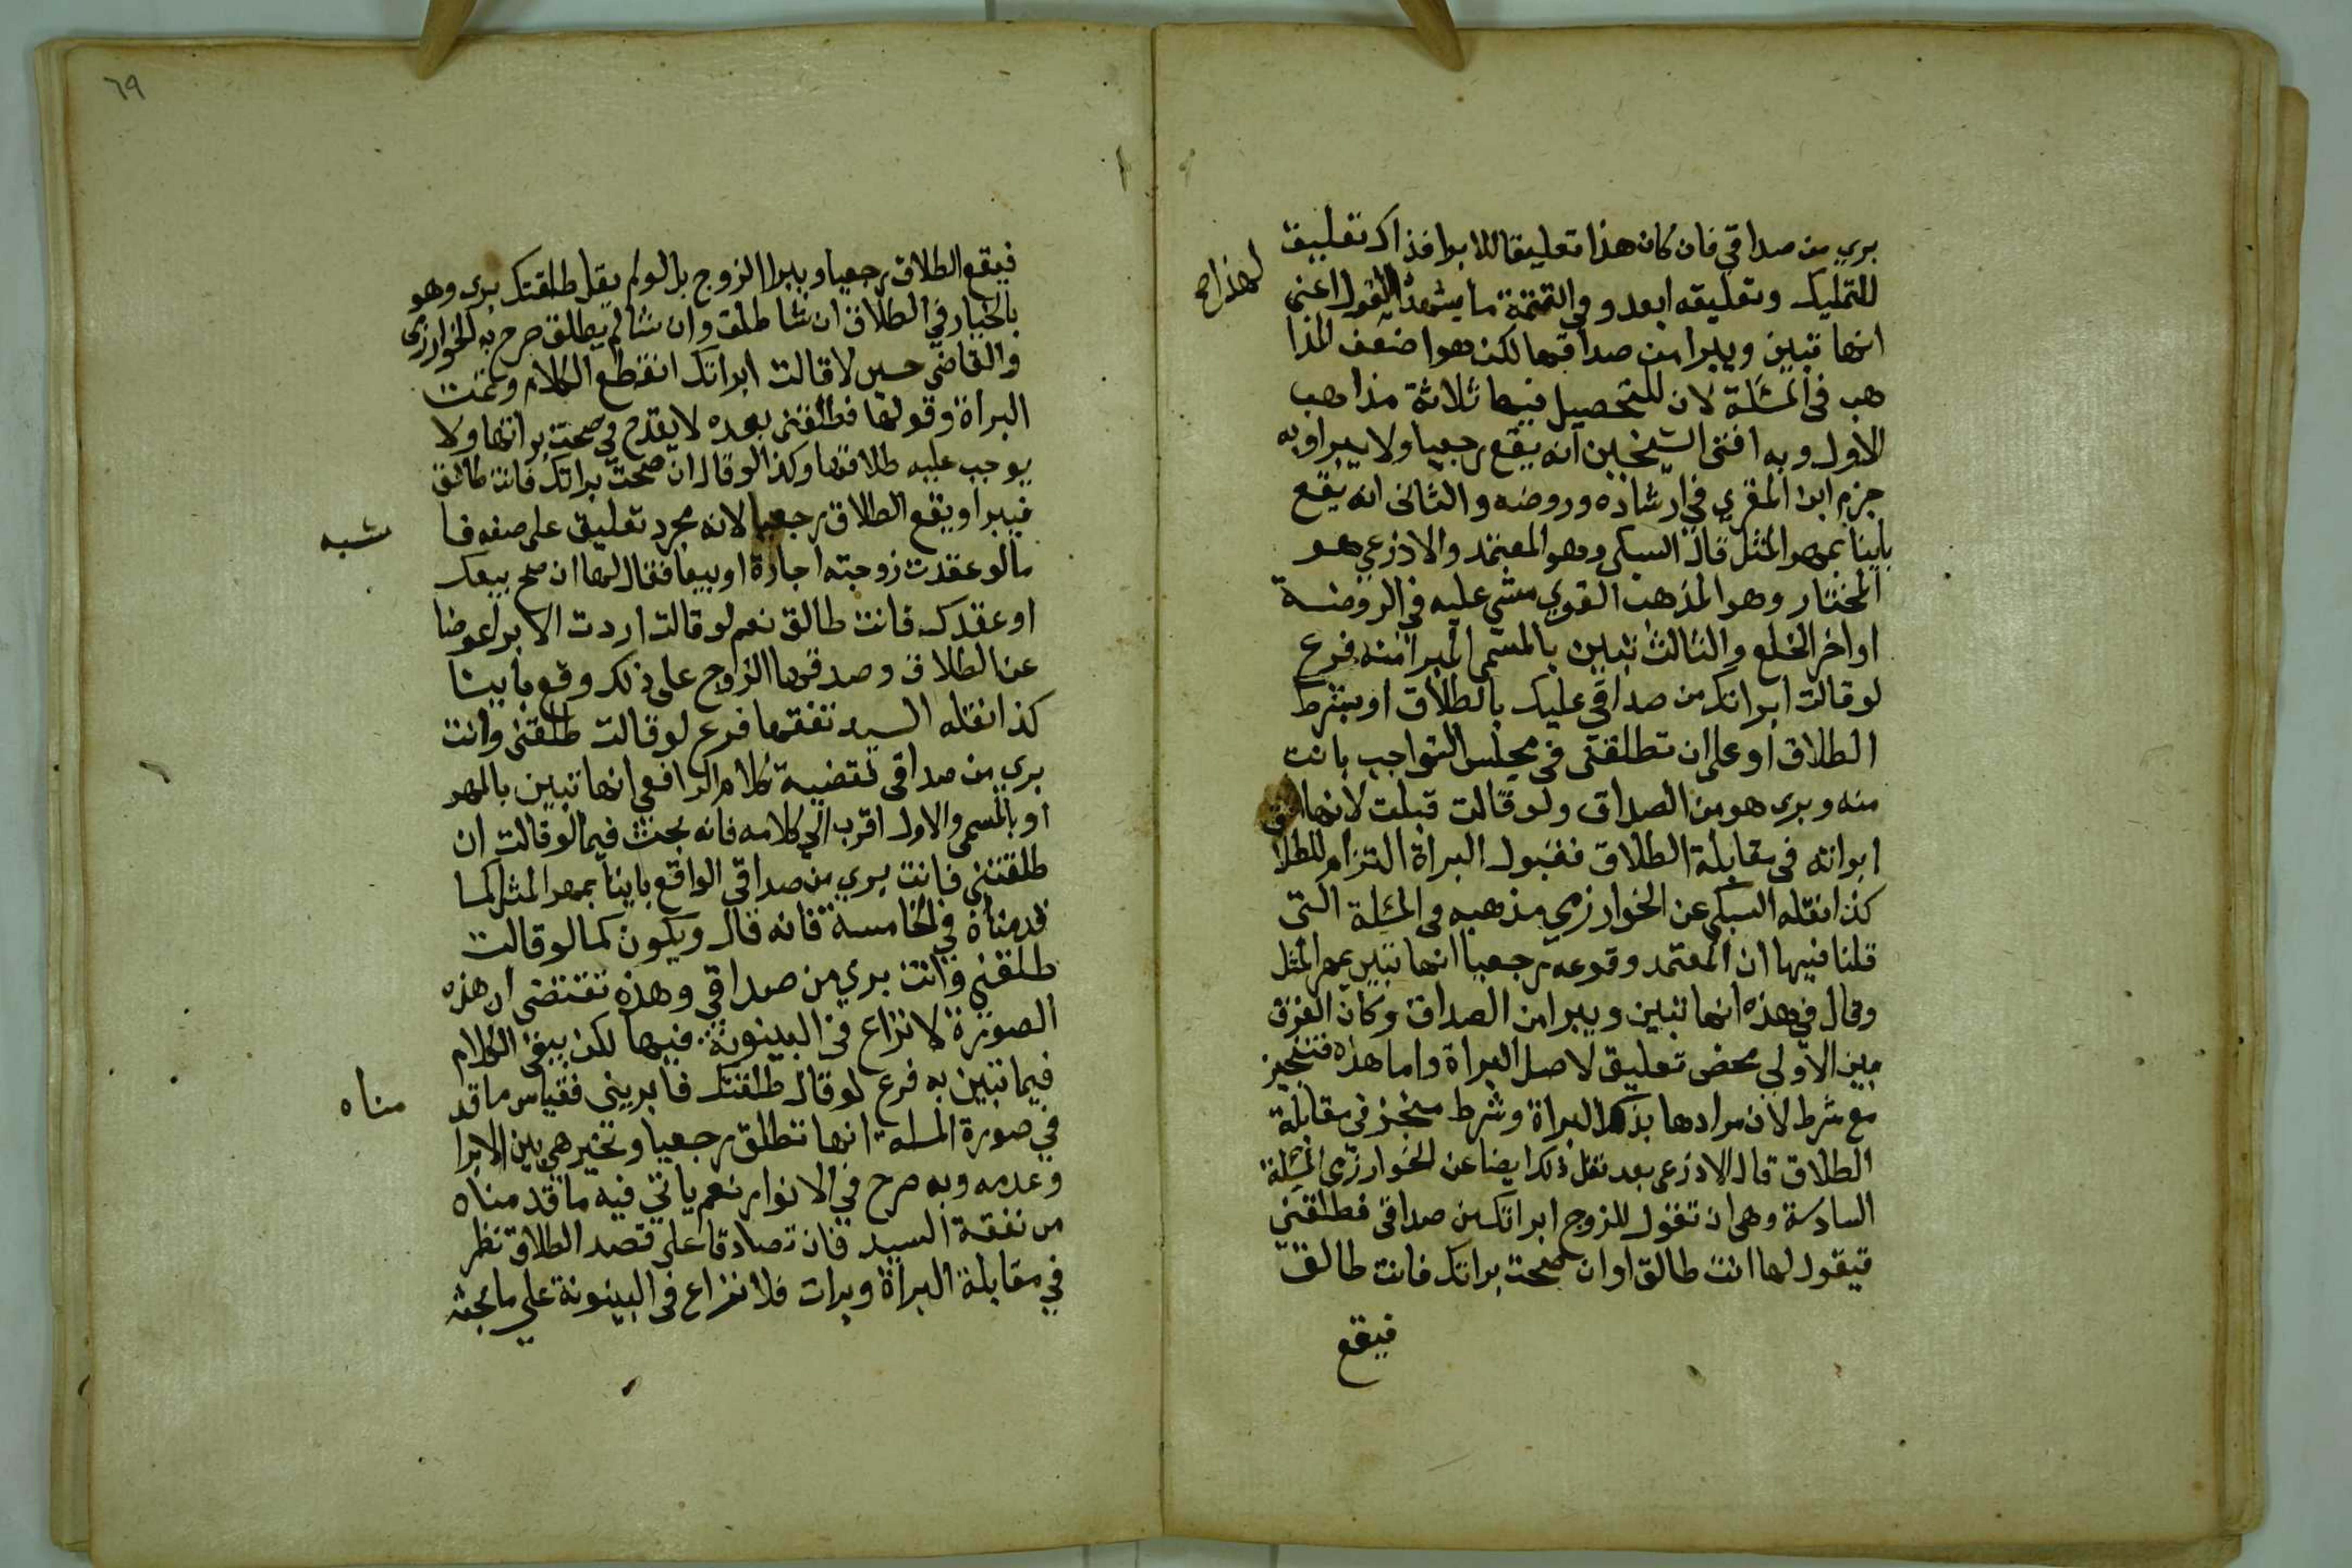 بري من صداقي فان كان هذا تعليقا للابرا فذاك تعليق
للتمليك وتعليقه ابعد وفي التتمة ما يشهد القول اعني
لهذا صح
انها تبين ويبرا من صداقها لكن هو اضعف المذا
هب في المسئلة لان للتحصيل فيها ثلاثة مذاهب
الاول وبه افتى الشيخين انه يقع رجعيا ولا يبرا وبه
جزم ابن المقري في ارشاده وروضه والثاني انه يقع
باينا بمهر المثل قال السبكي وهو المعتمد والاذرعي هو
المختار وهو المذهب القوي مشي عليه في الروضة
اواخر الخلع والثالث تبين بالمسمى المبرا منه فرع
لو قالت ابراتك من صداقي عليك بالطلاق او بشرط
الطلاق او على ان تطلقني في مجلس التواجب بانت
منه وبري هو من الصداق ولو قالت قبلت لانها
ابراته في مقابلة الطلاق فقبول البراة التزام للطلا
كذا نقله السبكي عن الخوارزمي مذهبه في المسئلة التي
قلنا فيها ان المعتمد وقوعه رجعيا انها تبين بمهر المثل
وقال في هذه انها تبين ويبرا من الصداق وكان الفرق
بين الاولي محض تعليق لاصل البراة واما هذه فتنجيز
مع شرط لان مرادها بذكر البراة وشرط منجز في مقابلة
الطلاق قال الاذرعي بعد نقل ذلك ايضا عن الخوارزمي المسئلة
السادسة وهي ان تقول للزوج ابراتك من صداقي فطلقني
فيقول لها انت طالق او ان صحت براتك فانت طالق
فيقع
٦٩
فيقع الطلاق رجعيا ويبرا الزوج بل لو لم يقل طلقتك بري وهو
بالخيار في الطلاق ان شا طلق وان شا لم يطلق صرح به الخوارزمي
والقاضي حسين لا قالت ابراتك انقطع الكلام وتمت
البراة وقولها فطلقني بعده لا يقدح في صحت براتها ولا
يوجب عليه طلاقها وكذا لو قال ان صحت براتك فانت طالق
فيبرا ويقع الطلاق رجعيا لانه مجرد تعليق على صفه فا
شبه
مالو عقدت زوجته اجارة او بيعا فقال لها ان صح بيعك
او عقدك فانت طالق نعم لو قالت اردت الابرا عوضا
عن الطلاق وصدقها الزوج على ذلك وقع باينا
كذا نقله السيد تفقها فرع لو قالت طلقني وانت
بري من صداقي فقضية كلام الرافعي انها تبين بالمهر
او بالمسمى والاول اقرب الي كلامه فانه بحث فيما لو قالت ان
طلقتني فانت بري من صداقي الواقع باينا بمهر المثل كما
قدمناه في الخامسة فانه قال ويكون كما لو قالت
طلقني وانت بري من صداقي وهذه تقتضي ان هذه
الصورة لا نزاع في البينونة فيها لكن يبقى الكلام
فيما تبين به فرع لو قال طلقتك فابريني فقياس ما قد
مناه
في صورة المسلة انها تطلق رجعيا وتخير هي بين الابرا
وعدمه وبه صرح في الانوار نعم ياتي فيه ما قدمناه
من تفقه السيد فان تصادقا على قصد الطلاق نظر
في مقابلة البراة وبرات فلا نزاع في البينونة على ما بحثه